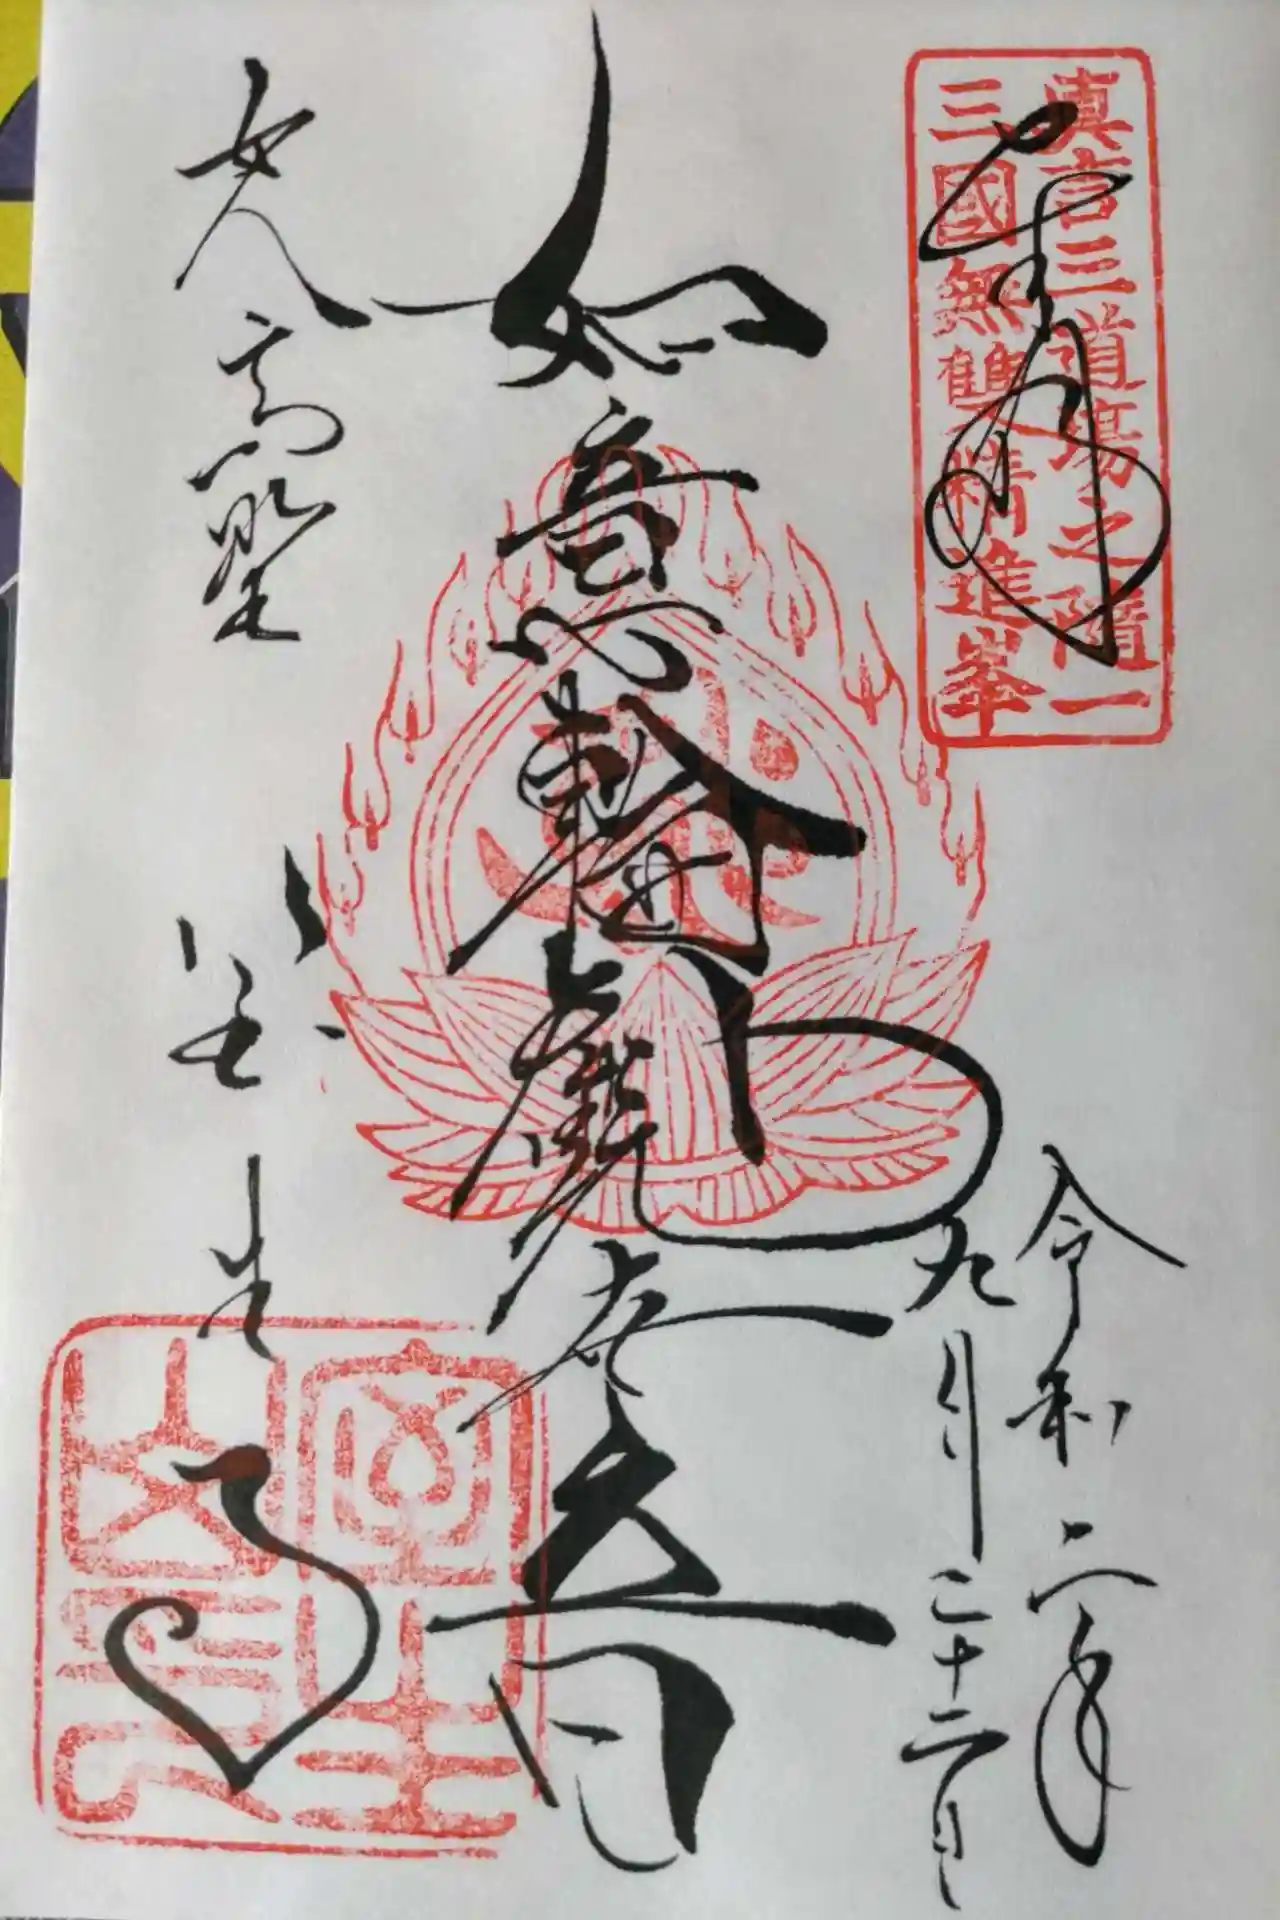 奉拝
眞言三道場之隨一
三國無雙精進峯
令和二年
九月二十二日
如意輪觀世音
女人高野
室生寺